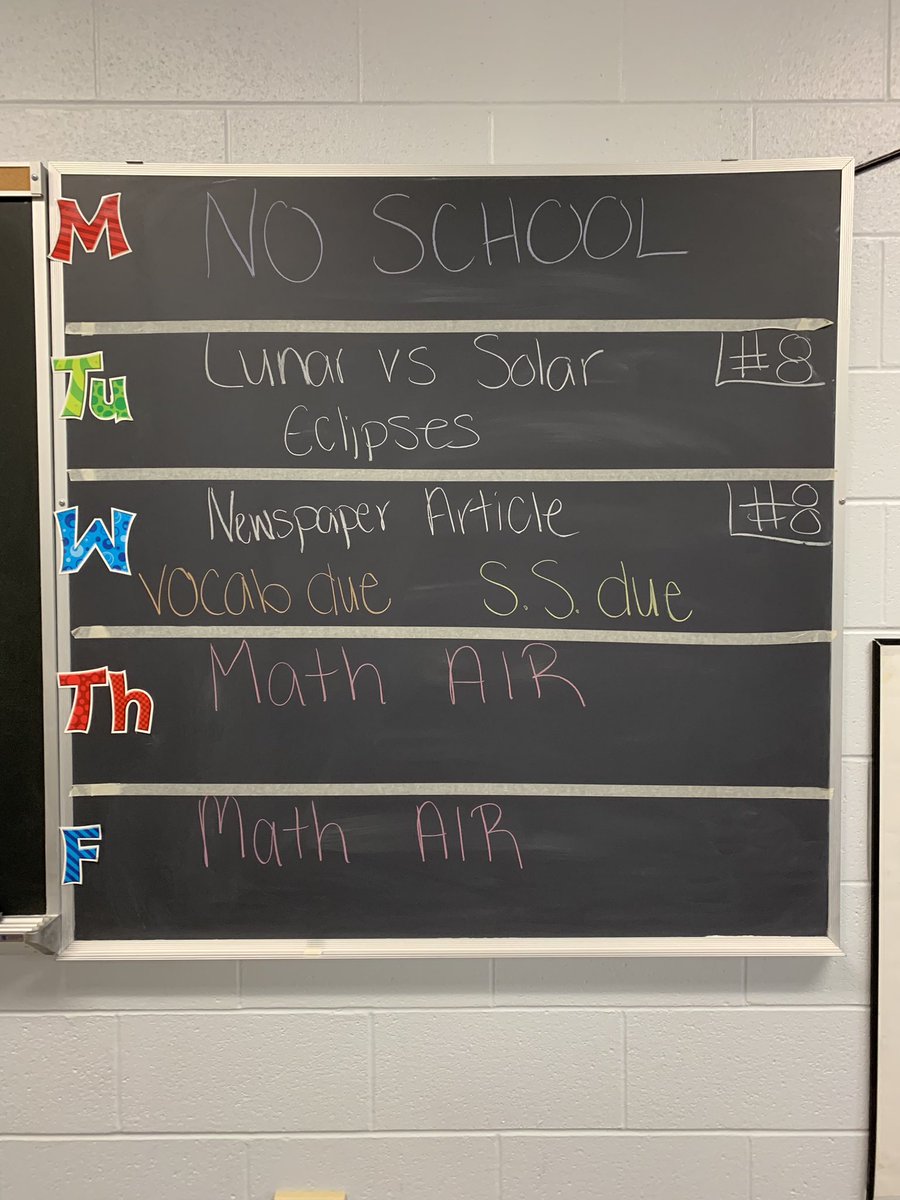 M NO SCHOOL
Tu Lunar vs Solar #8
Eclipses
W Newspaper Article #8
vocab due S.S. due
Th Math AIR
F Math AIR